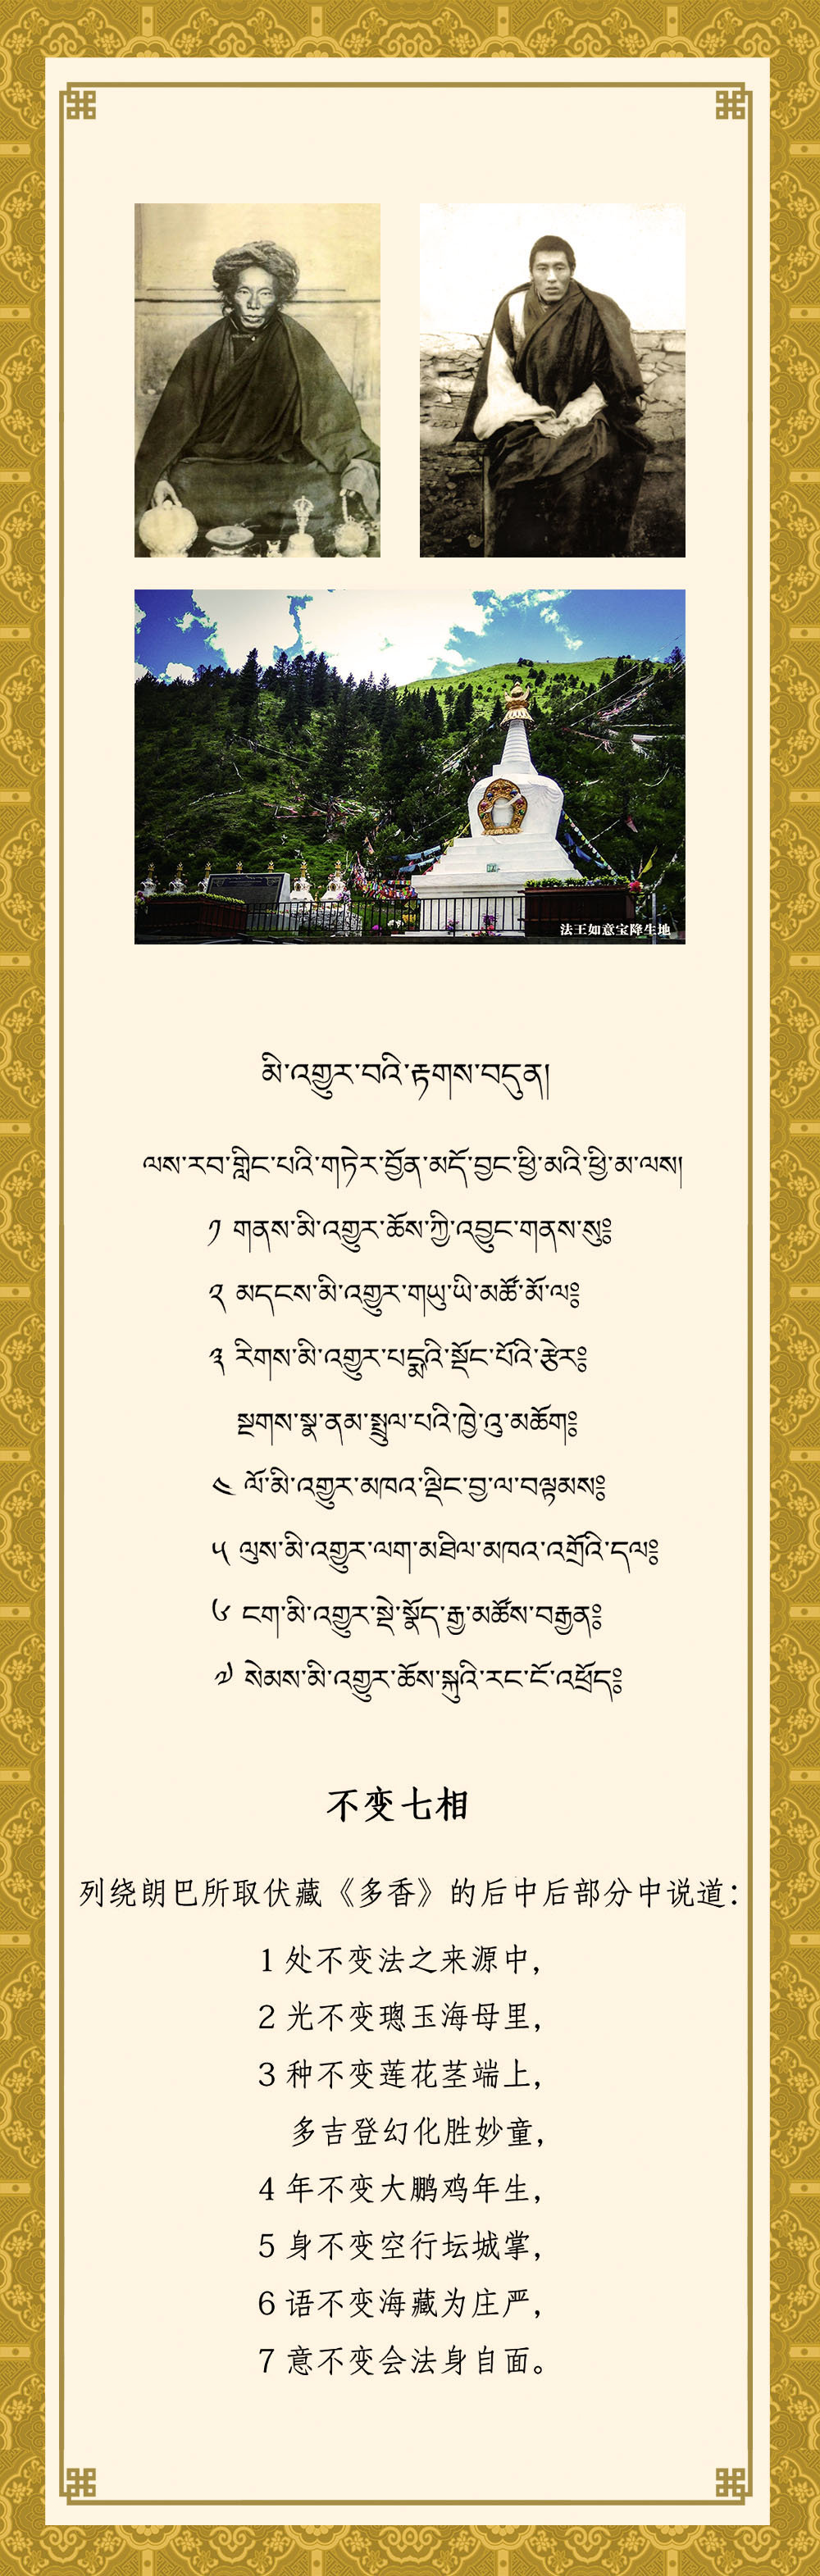 法王如意宝降生地
མི་འགྱུར་བའི་རྟགས་བདུན།
ལས་རབ་གླིང་པའི་གཏེར་བྱོན་མདོ་བྱང་ཕྱི་མའི་ཕྱི་མ་ལས།
༡ གནས་མི་འགྱུར་ཆོས་ཀྱི་འབྱུང་གནས་སུ༔
༢ མདངས་མི་འགྱུར་གཡུ་ཡི་མཚོ་མོ་ལ༔
༣ རིགས་མི་འགྱུར་པདྨའི་སྡོང་པོའི་རྩེར༔
སྔགས་སྣ་ནམ་སྤྲུལ་པའི་ཁྱེ་འུ་མཆོག༔
༤ ལོ་མི་འགྱུར་མཁའ་ལྡིང་བྱ་ལ་བལྟམས༔
༥ ལུས་མི་འགྱུར་ལག་མཐིལ་མཁའ་འགྲོའི་དལ༔
༦ ངག་མི་འགྱུར་སྡེ་སྣོད་རྒྱ་མཚོས་བརྒྱན༔
༧ སེམས་མི་འགྱུར་ཆོས་སྐུའི་རང་ངོ་འཕྲོད༔
不变七相
列绕朗巴所取伏藏《多香》的后中后部分中说道：
1 处不变法之来源中，
2 光不变璁玉海母里，
3 种不变莲花茎端上，
多吉登幻化胜妙童，
4 年不变大鹏鸡年生，
5 身不变空行坛城掌，
6 语不变海藏为庄严，
7 意不变会法身自面。